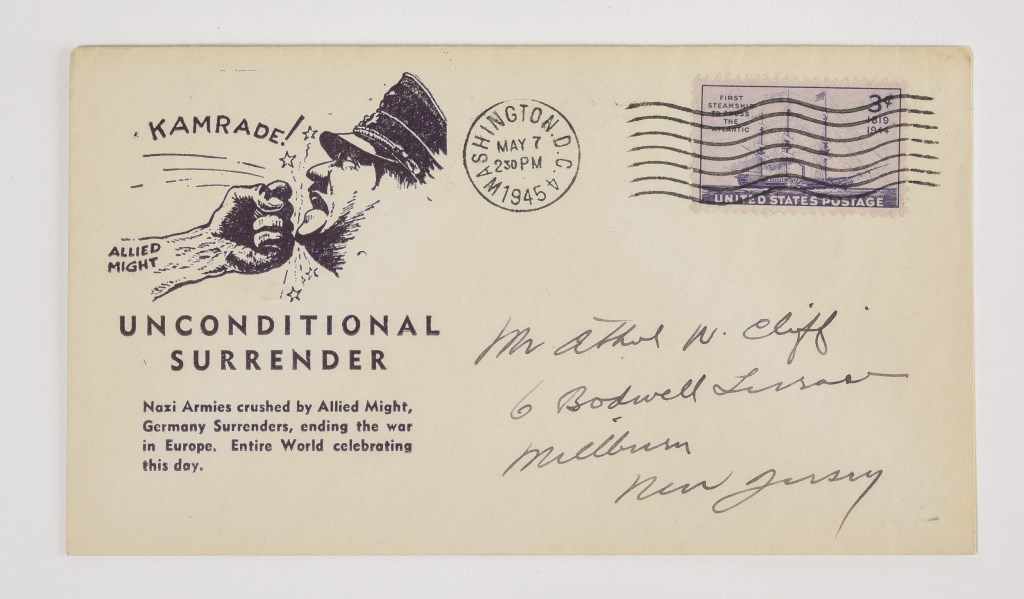 KAMRADE!
ALLIED
MIGHT
UNCONDITIONAL
SURRENDER
Nazi Armies crushed by Allied Might,
Germany Surrenders, ending the war
in Europe. Entire World celebrating
this day.
WASHINGTON, D.C. 4
MAY 7
230 PM
1945
FIRST
STEAMSHIP
TO CROSS
THE
ATLANTIC
3¢
1819
1944
UNITED STATES POSTAGE
Mr Athol W. Cliff
6 Bodwell Terrace
Millburn
New Jersey